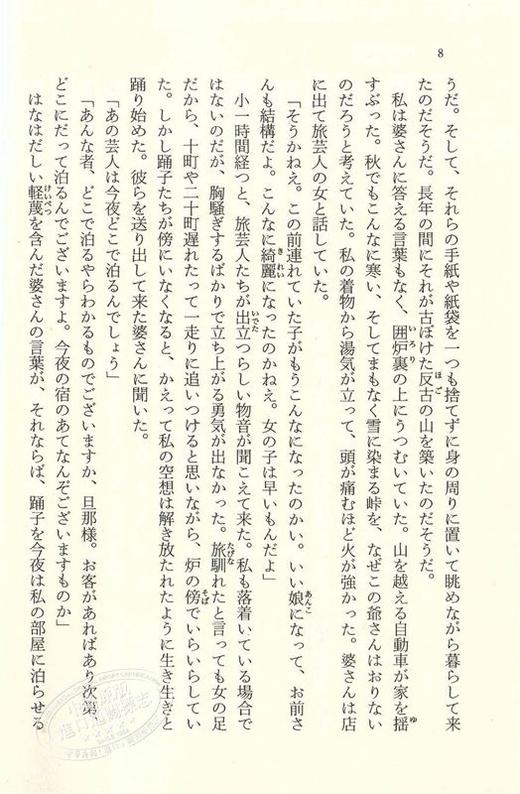 8
うだ。そして、それらの手紙や紙袋を一つも捨てずに身の周りに置いて眺めながら暮らして来
たのだそうだ。長年の間にそれが古ぼけた反古の山を築いたのだそうだ。
私は婆さんに答える言葉もなく、囲炉裏の上にうつむいていた。山を越える自動車が家を揺
すぶった。秋でもこんなに寒い、そしてまもなく雪に染まる峠を、なぜこの爺さんはおりない
のだろうと考えていた。私の着物から湯気が立って、頭が痛むほど火が強かった。婆さんは店
に出て旅芸人の女と話していた。
「そうかねえ。この前連れていた子がもうこんなになったのかい。いい娘になって、お前さ
んも結構だよ。こんなに綺麗になったのかねえ。女の子は早いもんだよ」
小一時間経つと、旅芸人たちが出立つらしい物音が聞こえて来た。私も落着いている場合で
はないのだが、胸騒ぎするばかりで立ち上がる勇気が出なかった。旅馴れたと言っても女の足
だから、十町や二十町遅れたって一走りに追いつけると思いながら、炉の傍でいらいらしてい
た。しかし踊子たちが傍にいなくなると、かえって私の空想は解き放たれたように生き生きと
踊り始めた。彼らを送り出して来た婆さんに聞いた。
「あの芸人は今夜どこで泊るんでしょう」
「あんな者、どこで泊るやらわかるものでございますか、旦那様。お客があればあり次第、
どこにだって泊るんでございますよ。今夜の宿のあてなんぞございますものか」
はなはだしい軽蔑を含んだ婆さんの言葉が、それならば、踊子を今夜は私の部屋に泊らせる